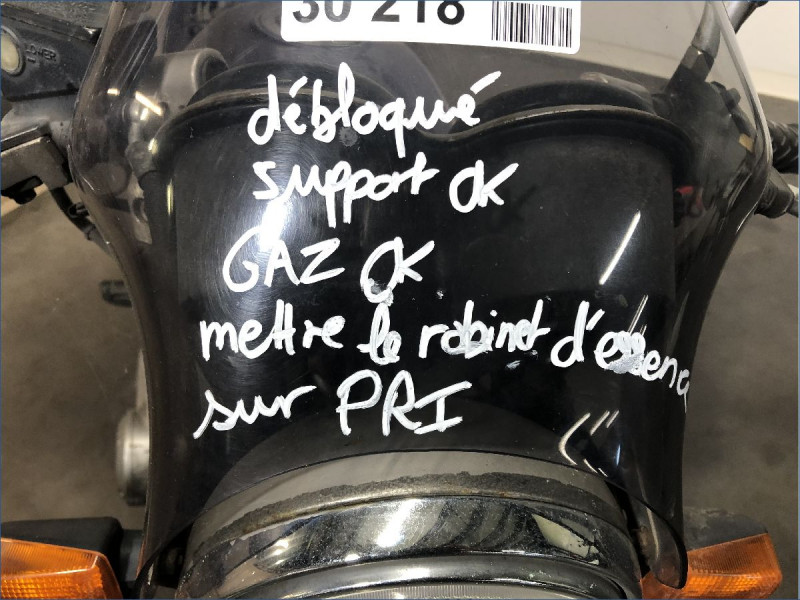 30 218
débloqué
support OK
GAZ OK
mettre le robinet d'essenc
sur PRI